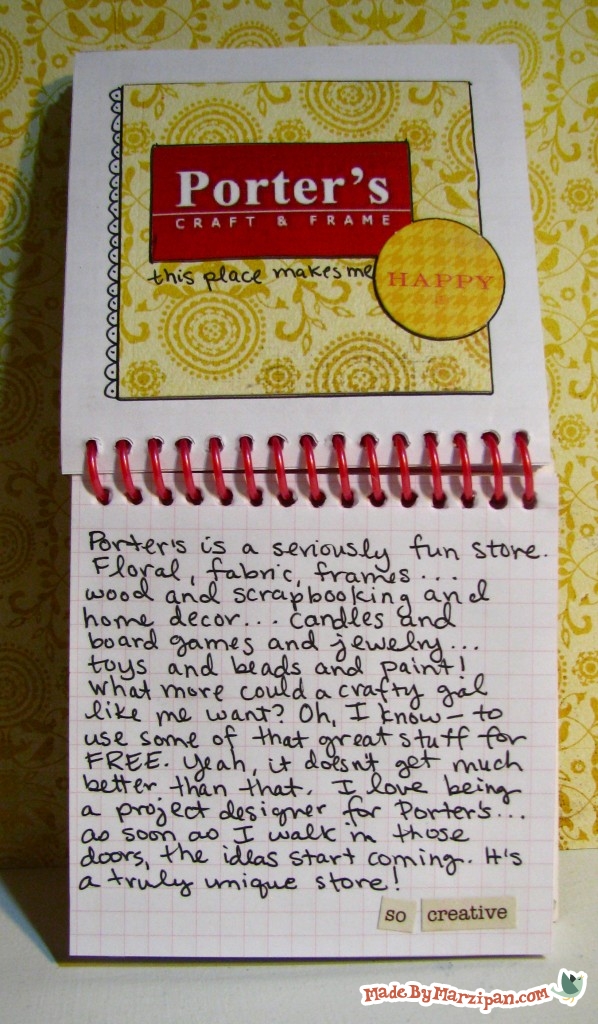 Porter's
CRAFT & FRAME
this place makes me
HAPPY
Porter's is a seriously fun store.
Floral, fabric, frames...
wood and scrapbooking and
home decor... candles and
board games and jewelry...
toys and beads and paint!
What more could a crafty gal
like me want? Oh, I know - to
use some of that great stuff for
FREE. Yeah, it doesn't get much
better than that. I love being
a project designer for Porter's...
as soon as I walk in those
doors, the ideas start coming. It's
a truly unique store!
so creative
MadeByMarzipan.com